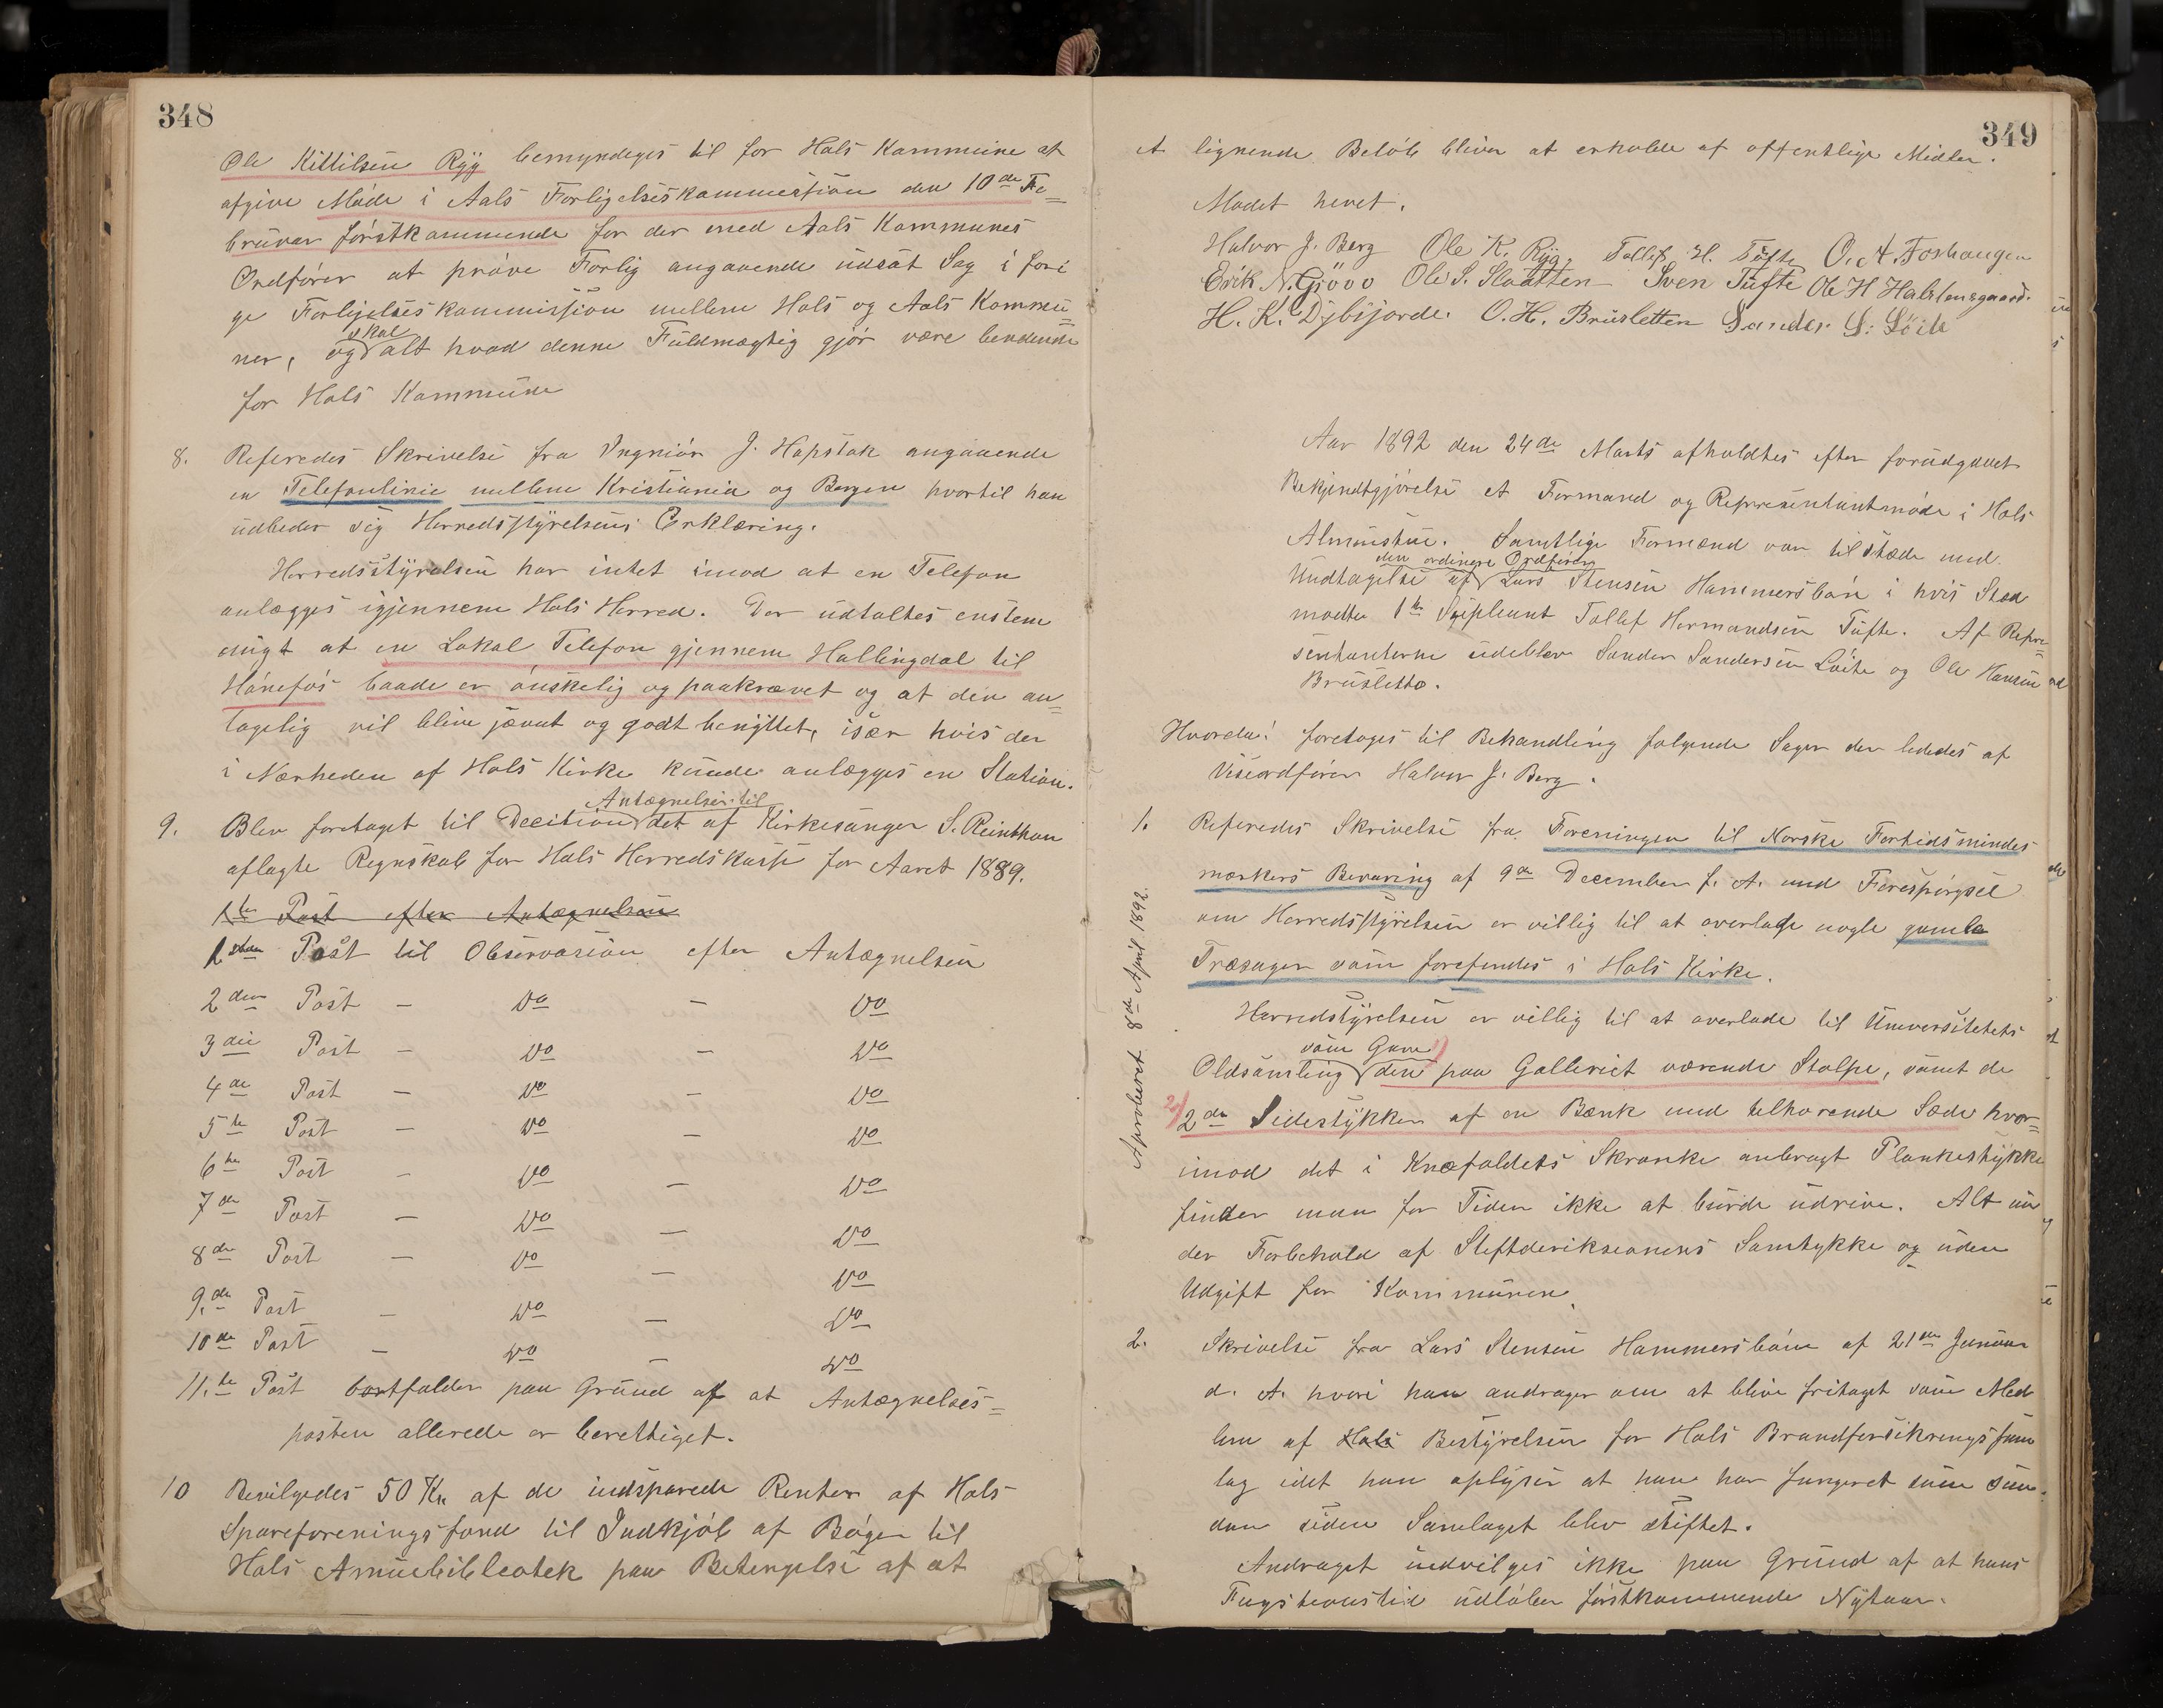 348
Ole Kittilsen Ryg bemyndeges til for Hols Kommune at
afgive Møde i Aals Forligelseskommission den 10de Fe=
bruar førstkommende for der med Aals Kommunes
Ordfører at prøve Forlig angaaende udsat Sag i fori
ge Forligelseskommission mellem Hols og Aals Kommu=
skal
ner, og alt hvad denne Fuldmægtig gjør være bendende
for Hols Kommune
8. Referedes Skrivelse fra Ingniør J. Hapstok angaaende
en Telefonlinie mellem Kristiania og Bergen hvortil han
udbeder sig Herredsstyrelsens Erklæring.
Herredsstyrelsen har intet imod at en Telefon
anlægges igjennem Hols Herred. Der udtaltes enstem
migt at en Lokal Telefon gjennem Hallingdal til
Hønefos baade er ønskelig og paakrævet og at den an=
tagelig vil blive jævnt og godt benyttet, især hvis der
i Nærheden af Hols Kirke kunde anlægges en Station.
Antegnelser til
9. Blev foretaget til Decition det af Kirkesanger S. Reinthon
aflagte Regnskab for Hols Herredskasse for Aaret 1889.
1te Post efter Antægnelsen
1ste Post til Observasion efter Antægnelsen
2den Post - Do - Do
3die Post - Do - Do
4de Post - Do - Do
5te Post - Do - Do
6te Post - Do - Do
7de Post - Do - Do
8de Post - Do - Do
9.de Post - Do - Do
10de Post - Do - Do
11.te Post bortfalder paa Grund af at Antægnelses=
posten allerede er berettiget.
10 Bevilgedes 50 Kr af de indsparede Renter af Hols
Spareforeningsfond til Indkjøb af Bøger til
Hols Almuebibleotek paa Betengelse af at
349
et lignende Beløb bliver at erholde af offentlige Midler.
Mødet hevet.
Halvor J. Berg Ole K. Ryg. Tollef H. Tufte O. A. Foshaugen
Erik N. Gjøvo Ole S. Slaatten Sven Tufte Ole H Halstensgaard.
H. K. Dybsjorde. O. H. Brusletten Sander S. Løite
Aar 1892 den 24de Marts afholdtes efter forudgaaet
Bekjendtgjørelse et Formand og Representantmøde i Hols
Almuestue. Samtlige Formænd var tilstæde med
den ordinære Ordfører
Undtagelse af Lars Stensen Hammersbøen i hvis Sted
mødte 1te Supleant Tollef Hermandsen Tufte. Af Repre=
sentanterne udeblev Sander Sandersen Løite og Ole Hansen
Brusletto.
Hvorda! foretoges til Behandling følgende Sager der lededes af
Viseordfører Halvor J. Berg.
1. Referedes Skrivelse fra Foreningen til Norske Fortidsmindes
mærkers Bevaring af 9de December f. A. med Forespørgsel
om Herredsstyrelsen er villig til at overlade nogle gamle
Træsager som forefindes i Hols Kirke.
Herredstyrelsen er villig til at overlade til Universitetets
som Gave 1)
Oldsamling den paa Galleriet værende Stolpe, samt de
2) 2de Sidestykker af en Bænk med tilhørende Sæde hvor=
imod det i Knæfaldets Skranke anbragt Plankestykke
finder man for Tiden ikke at burde udrive. Alt un
der Forbehold af Stiftderiksionens Samtykke og uden
Udgift for Kommunen.
Aproberet 8de April 1892.
2. Skrivelse fra Lars Stensen Hammersbøen af 21de Januar
d. A. hvori han andrager om at blive fritaget som Med
lem af Hols Bestyrelsen for Hols Brandforsikringssam
lag idet han oplyser at han har fungeret som saa=
dan siden Samlaget blev stiftet.
Andraget indvilges ikke paa Grund af at hans
Fungstionstid udløber førstkommende Nytaar.